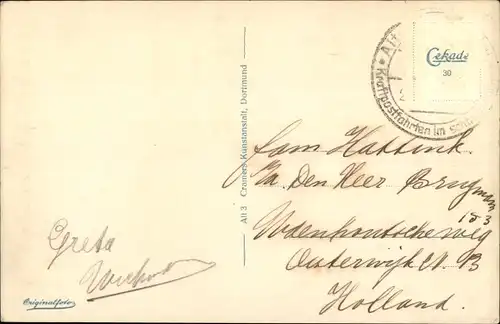 Cekade
30
Alt
Kraftpostfahrten im sch
Alt 3 Cramers Kunstanstalt, Dortmund
Fam Hattink.
p/a. Den Heer Brugman
Udenhoutscheweg 153
Oisterwijk N. B
Holland.
Greta
Originalfoto